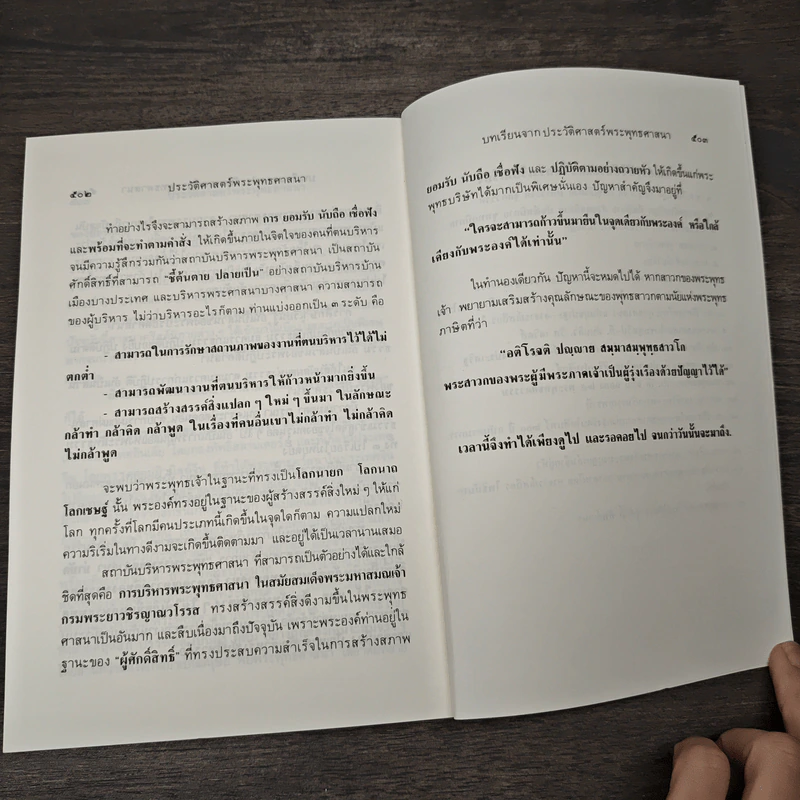 ๕๐๒ ประวัติศาสตร์พระพุทธศาสนา
ทำอย่างไรจึงจะสามารถสร้างสภาพ การ ยอมรับ นับถือ เชื่อฟัง
และพร้อมที่จะทำตามคำสั่ง ให้เกิดขึ้นภายในจิตใจของคนที่ตนบริหาร
จนมีความรู้สึกร่วมกันว่าสถาบันบริหารพระพุทธศาสนา เป็นสถาบัน
ศักดิ์สิทธิ์ที่สามารถ "ชี้ต้นตาย ปลายเป็น" อย่างสถาบันบริหารบ้าน
เมืองบางประเทศ และบริหารพระศาสนาบางศาสนา ความสามารถ
ของผู้บริหาร ไม่ว่าบริหารอะไรก็ตาม ท่านแบ่งออกเป็น ๓ ระดับ คือ
- สามารถในการรักษาสถานภาพของงานที่ตนบริหารไว้ได้ไม่
ตกต่ำ
- สามารถพัฒนางานที่ตนบริหารให้ก้าวหน้ามากยิ่งขึ้น
- สามารถสร้างสรรค์สิ่งแปลก ๆ ใหม่ ๆ ขึ้นมา ในลักษณะ
กล้าทำ กล้าคิด กล้าพูด ในเรื่องที่คนอื่นเขาไม่กล้าทำ ไม่กล้าคิด
ไม่กล้าพูด
จะพบว่าพระพุทธเจ้าในฐานะที่ทรงเป็นโลกนายก โลกนาถ
โลกเชษฐ์ นั้น พระองค์ทรงอยู่ในฐานะของผู้สร้างสรรค์สิ่งใหม่ ๆ ให้แก่
โลก ทุกครั้งที่โลกมีคนประเภทนี้เกิดขึ้นในจุดใดก็ตาม ความแปลกใหม่
ความริเริ่มในทางดีงามจะเกิดขึ้นติดตามมา และอยู่ได้เป็นเวลานานเสมอ
สถาบันบริหารพระพุทธศาสนา ที่สามารถเป็นตัวอย่างได้และใกล้
ชิดที่สุดคือ การบริหารพระพุทธศาสนา ในสมัยสมเด็จพระมหาสมณเจ้า
กรมพระยาวชิรญาณวโรรส ทรงสร้างสรรค์สิ่งดีงามขึ้นในพระพุทธ
ศาสนาเป็นอันมาก และสืบเนื่องมาถึงปัจจุบัน เพราะพระองค์ท่านอยู่ใน
ฐานะของ "ผู้ศักดิ์สิทธิ์" ที่ทรงประสบความสำเร็จในการสร้างสภาพ
บทเรียนจากประวัติศาสตร์พระพุทธศาสนา ๕๐๓
ยอมรับ นับถือ เชื่อฟัง และ ปฏิบัติตามอย่างถวายหัว ให้เกิดขึ้นแก่พระ
พุทธบริษัทได้มากเป็นพิเศษนั่นเอง ปัญหาสำคัญจึงมาอยู่ที่
"ใครจะสามารถก้าวขึ้นมายืนในจุดเดียวกับพระองค์ หรือใกล้
เคียงกับพระองค์ได้เท่านั้น"
ในทำนองเดียวกัน ปัญหานี้จะหมดไปได้ หากสาวกของพระพุทธ
เจ้า พยายามเสริมสร้างคุณลักษณะของพุทธสาวกตามนัยแห่งพระพุทธ
ภาษิตที่ว่า
"อติโรจติ ปญฺญาย สมฺมาสมฺพุทฺธสาวโก
พระสาวกของพระผู้มีพระภาคเจ้าเป็นผู้รุ่งเรืองด้วยปัญญาไว้ได้"
เวลานี้จึงทำได้เพียงดูไป และรอคอยไป จนกว่าวันนั้นจะมาถึง.